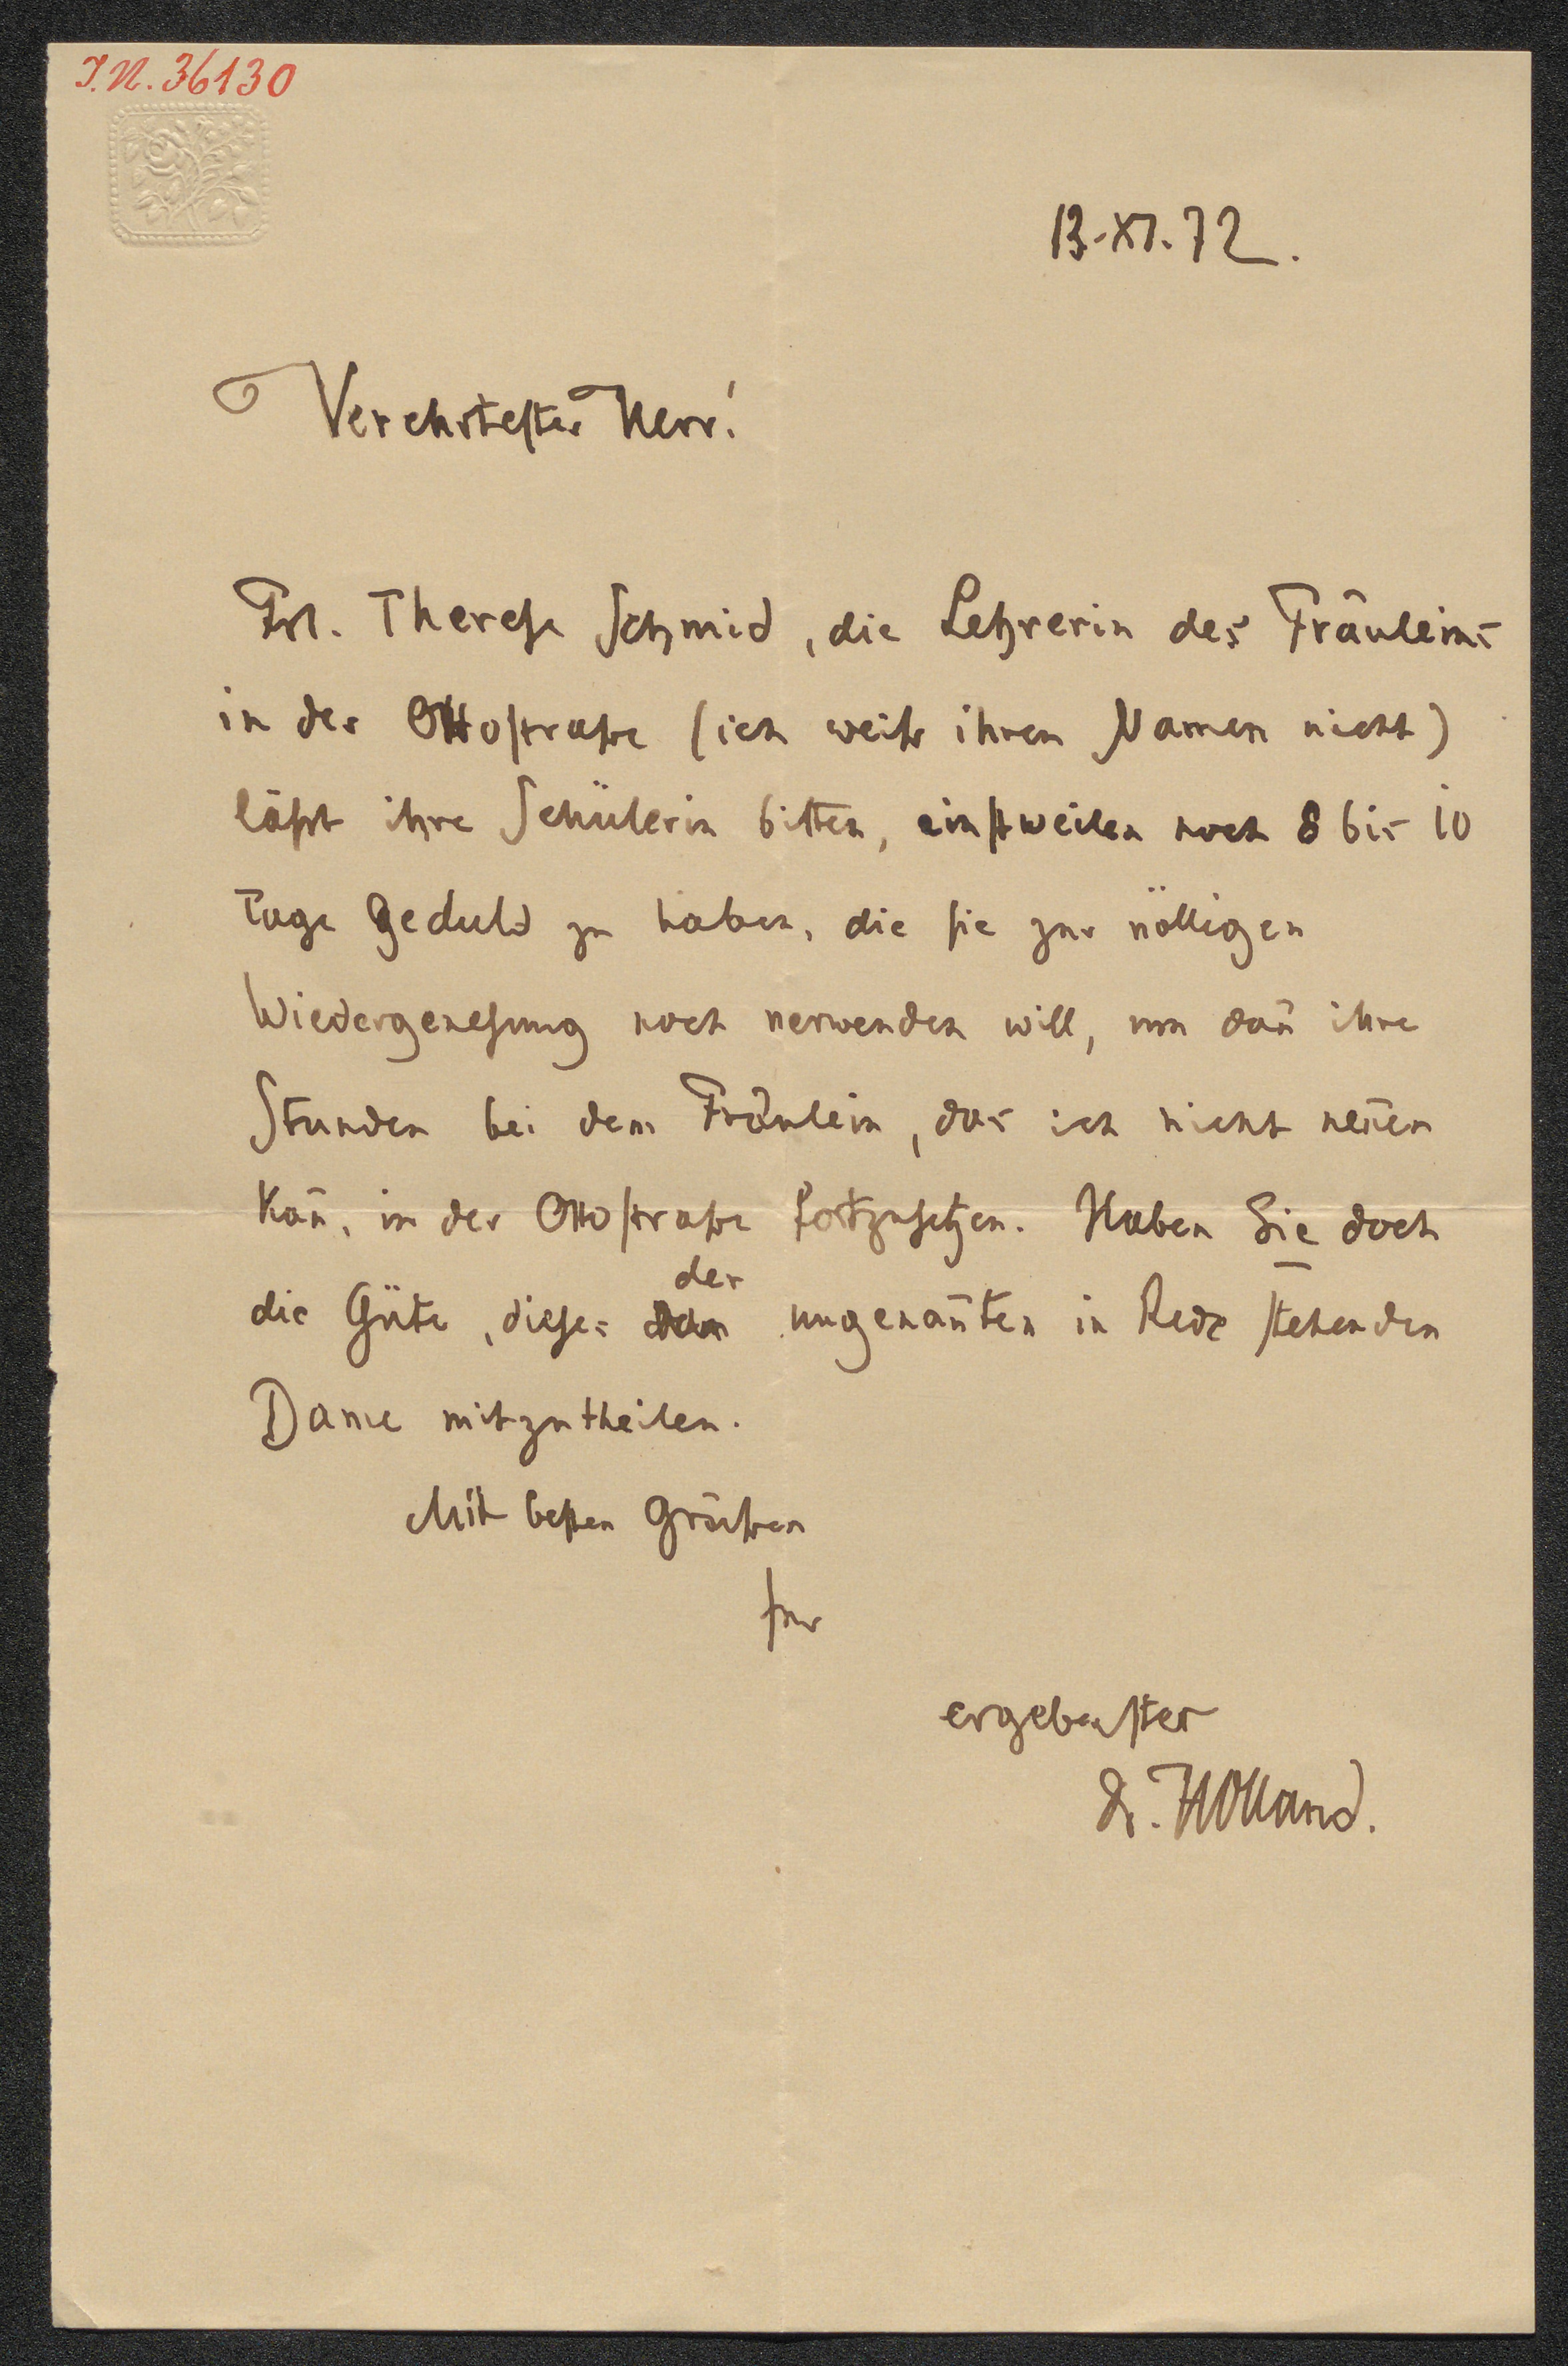 I.N. 36130
13.XI.72.
Verehrtester Herr!
Frl. Therese Schmid, die Lehrerin des Fräuleins
in der Ottostraße (ich weiß ihren Namen nicht)
läßt ihre Schülerin bitten, einstweilen noch 8 bis 10
Tage Geduld zu haben, die sie zur völligen
Wiedergenesung noch verwenden will, um dan̄ ihre
Stunden bei dem Fräulein, das ich nicht nen̄en
kan̄, in der Ottostraße fortzusetzen. Haben Sie doch
der
die Güte, dieses ungenan̄ten in Rede stehenden
Dame mitzutheilen.
Mit besten Grüßen
Ihr
ergebenster
Dr. Holland.